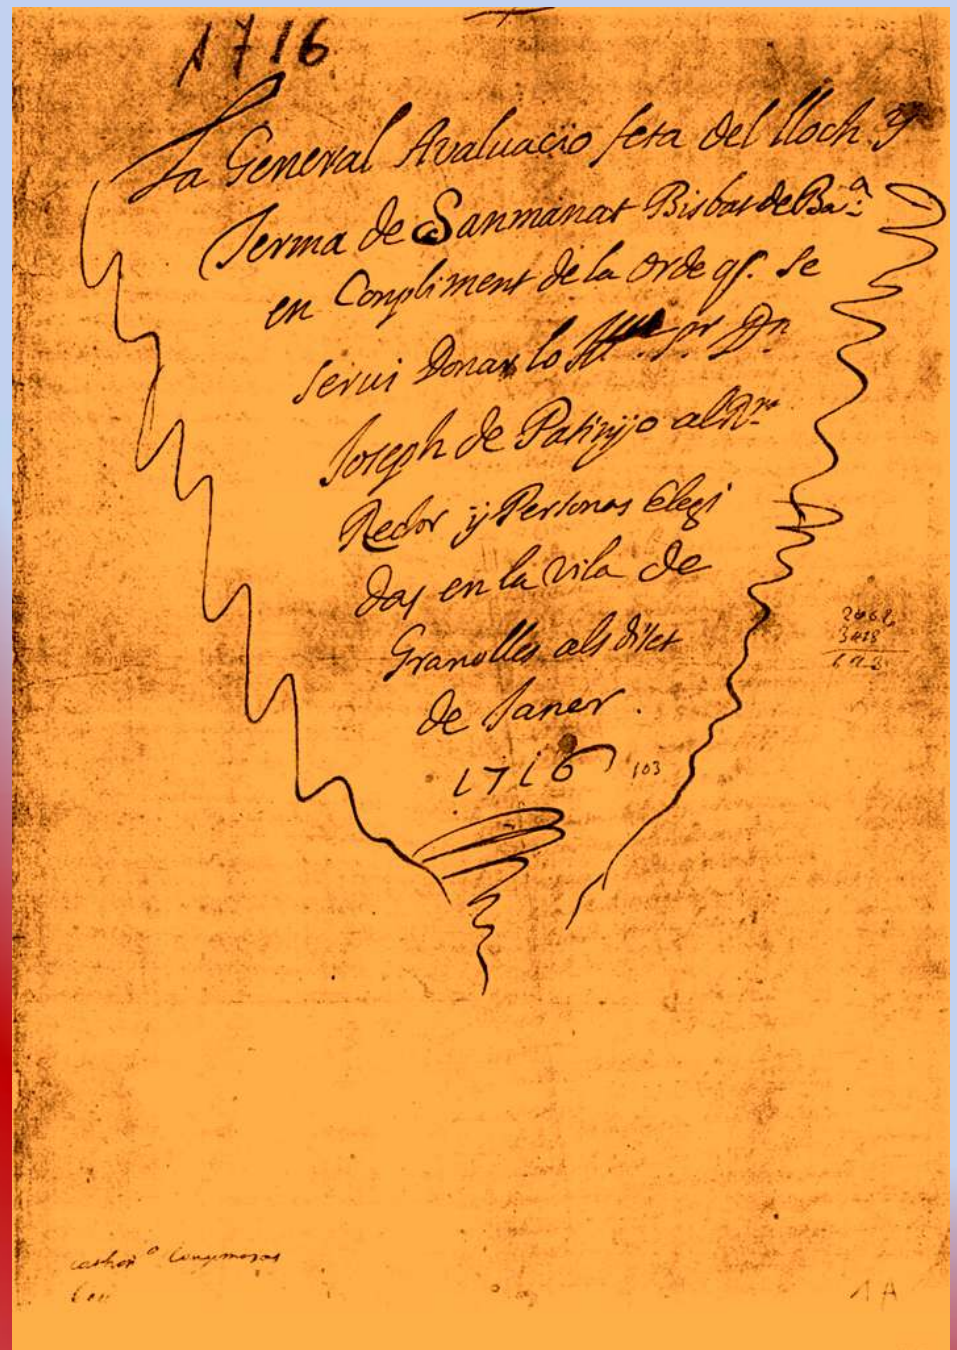 1716
La General Avaluacio feta del lloch y
Terma de Sanmanat Bisbat de Ba.ª
en Conpliment de la orde q. se
servi Donar lo sr Dn
Joseph de Patinyo al Rt.
Rector y Personas Elegi
das en la vila de
Granolles als
de Janer.
1716 103
1A